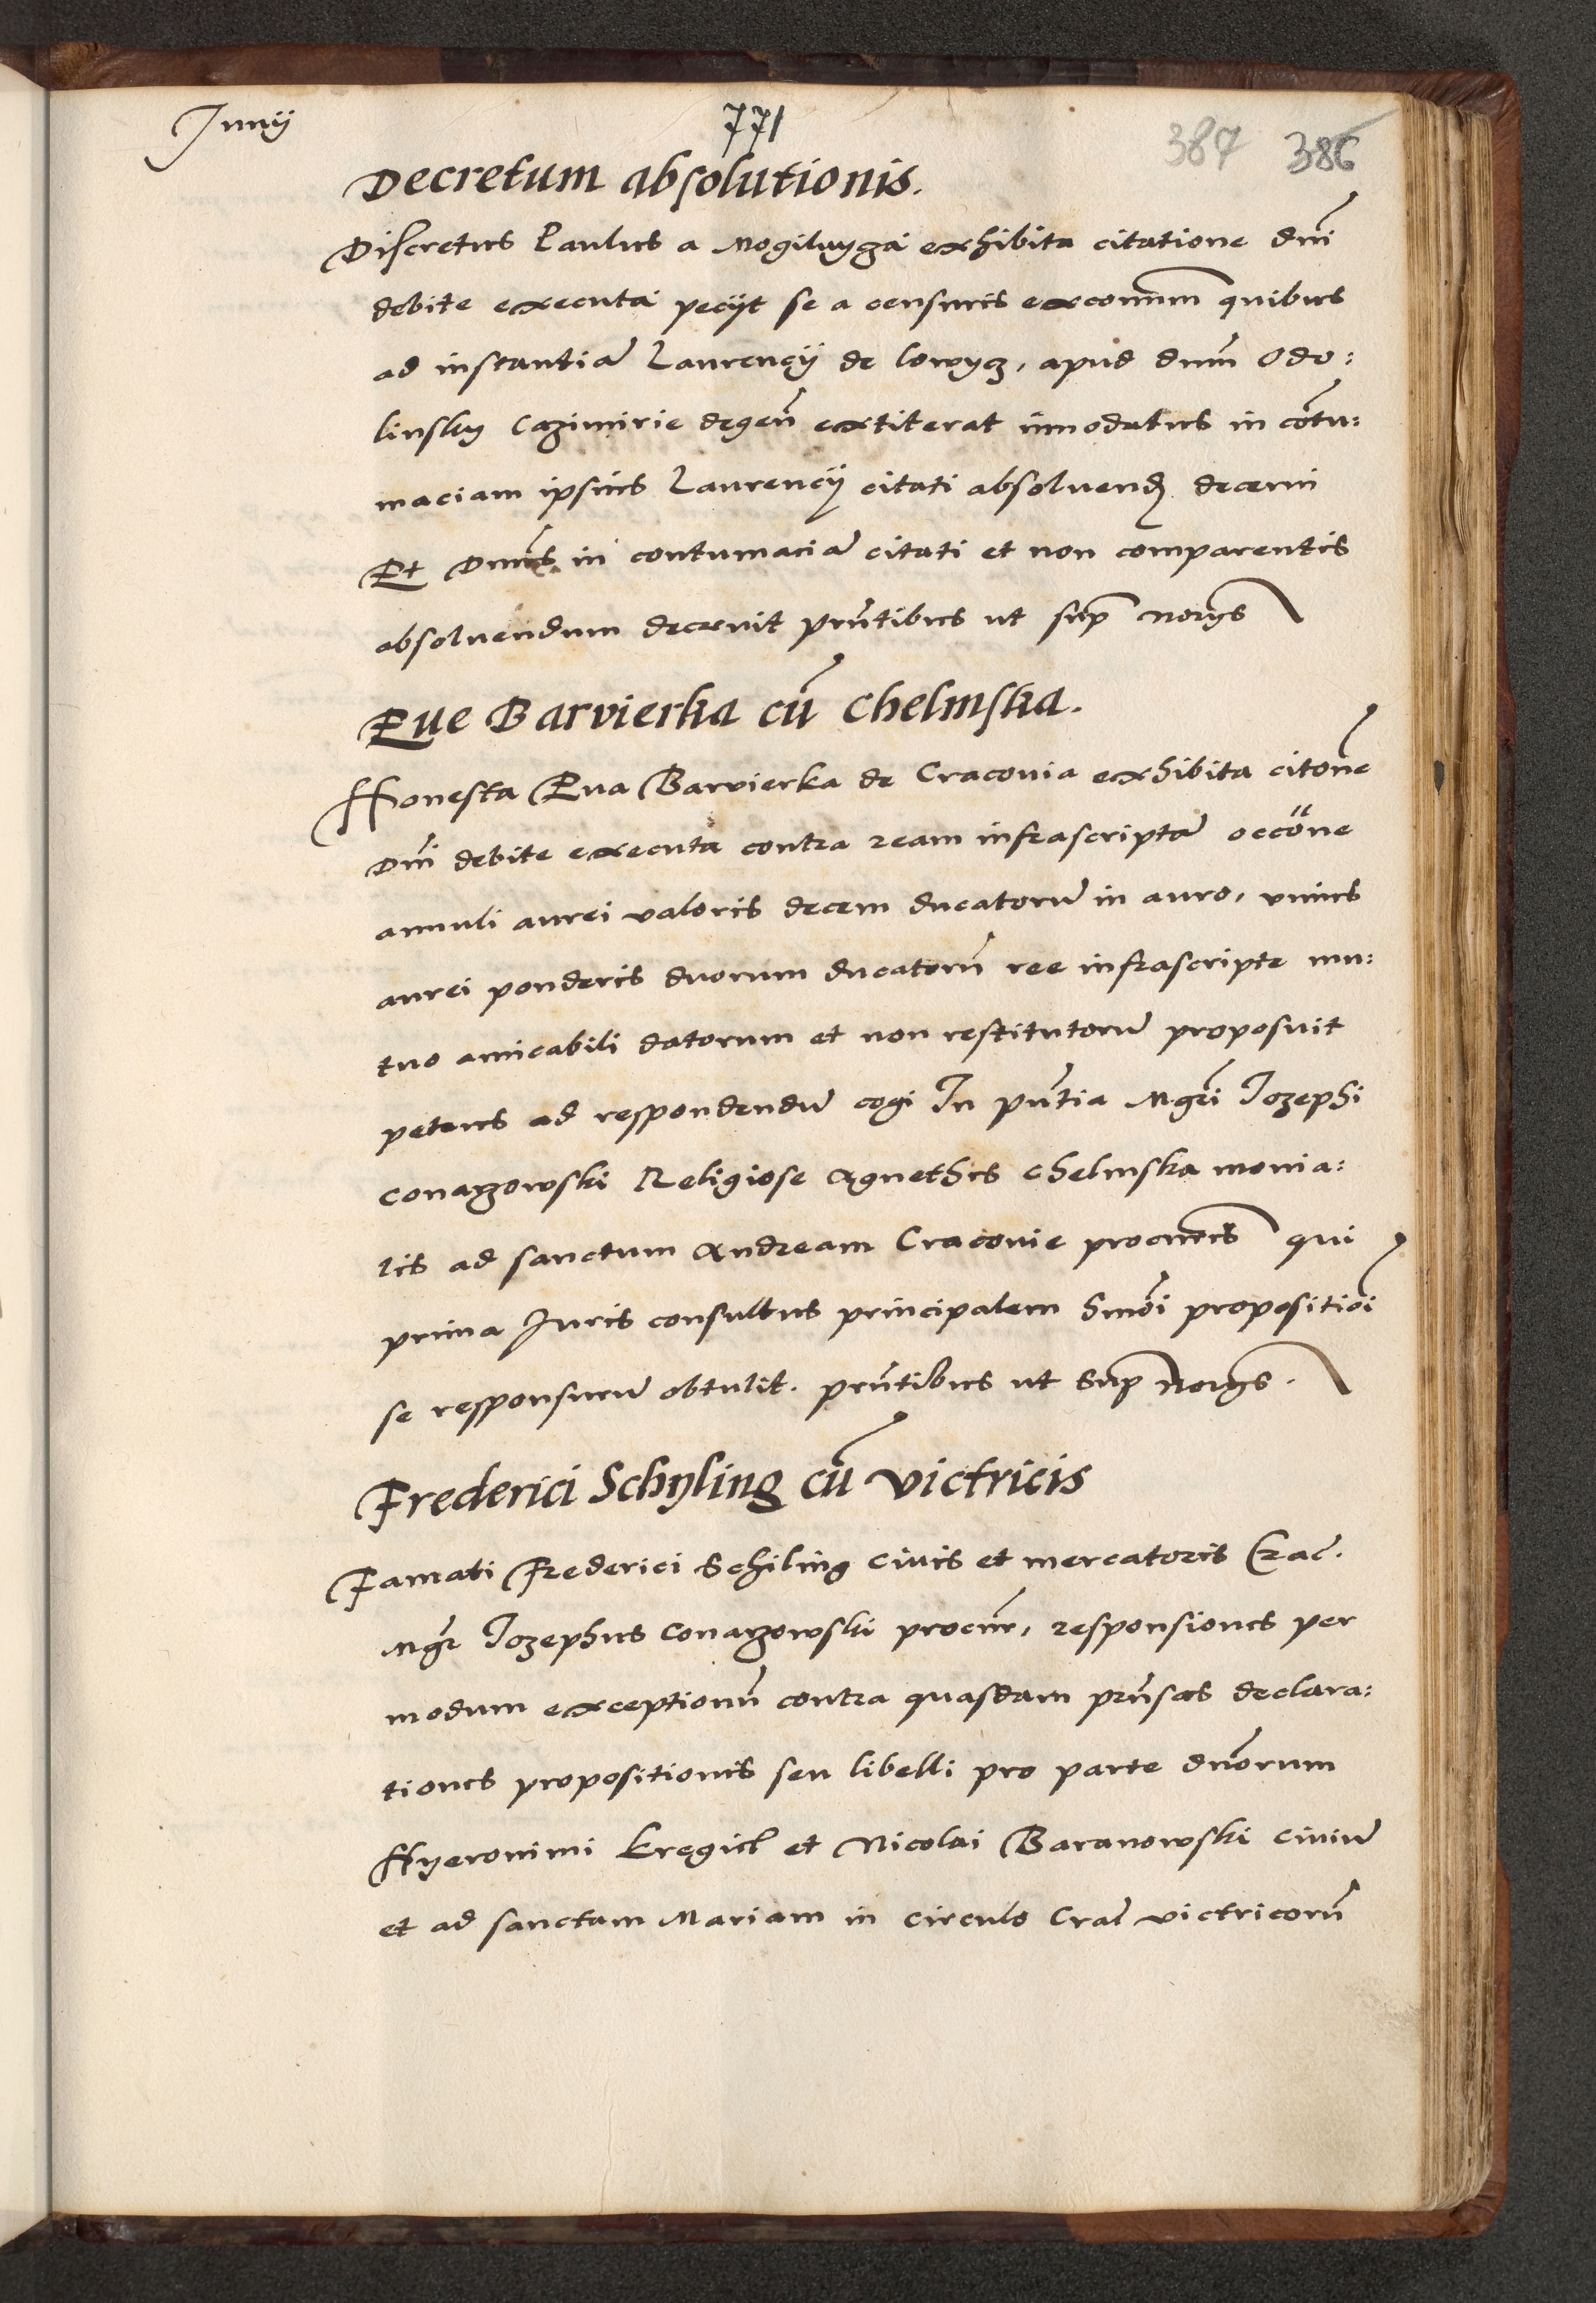 Junij
771
387 386
Decretum absolutionis.
Discretus Paulus a Mogiluyza exhibita citatione dnī
debite executa peciit se a censuris excommum quibus
ad instantiā Laurencij de Lowycz, apud dnm Odo:
linsky Cazimirie degeñ extiterat innodatus in contu:
maciam ipsius Laurencij citati absoluend decerni
Et Dnus in contumaciā citati et non comparentis
absoluendum decreuit pñtibus ut sup norys
Eue Barvierka cū Chelmska.
Honesta Eua Barvierka de Cracouia exhibita citone
Dnī debite executa contra ream infrascriptā occōne
annuli aurei valoris decem ducatorū in auro, vnius
aurei ponderis duorum ducatorū ree infrascripte mu:
tuo amicabili datorum et non restitutorū proposuit
petens ad respondendū cogi In pñtia Mgrī Jozephi
Conarzowski Religiose Agnethis Chelmska monia:
lis ad sanctum Andream Cracouie procuris qui
prima Juris consultus principalem hmōi propositiōi
se responsurū obtulit. pñtibus ut sup norys.
Frederici Schyling cū victricis
Famati Frederici Schiling ciuis et mercatoris Crac.
Mgr Jozephus Conarzowski procur, responsiones per
modum exceptionū contra quasdam prñsas declara:
tiones propositionis seu libelli pro parte dnorum
Hyeronimi Kregiel et Nicolai Baranowski ciuiū
et ad sanctam Mariam in circulo Crac victricorū